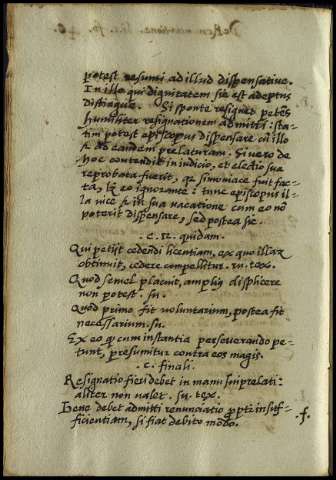 potest resumi ad illud dispensative.
In illo qui dignitatem sic est adeptus
distingue. Si sponte resignet petẽs
humiliter resignationem admitti: sta-
tim potest episcopus dispensare cũ illo
ad eandem prelaturam. Si vero de
hoc contendit in iudicio, et electio sua
reprobata fuerit, qz simoniace fuit fac-
ta, eo ignorante: tunc episcopus il-
la vice in sua vacatione cum eo nõ
poterit dispensare, sed postea sic.
.c. 12. quidam.
Qui petijt cedendi licentiam, ex quo illaz
obtinuit, cedere compellitur. tex.
Quod semel placuit, amplius displicere
non potest. su.
Quod primo fit voluntarium, postea fit
necessarium. su.
Ex eo qz cum instantia perseverando pe-
tunt, presumitur contra eos magis.
.c. finali.
Resignatio fieri debet in manu superi prelati:
aliter non valet. su. tex.
Bene debet admitti renunciatio propter insuf-
ficientiam, si fiat debito modo.